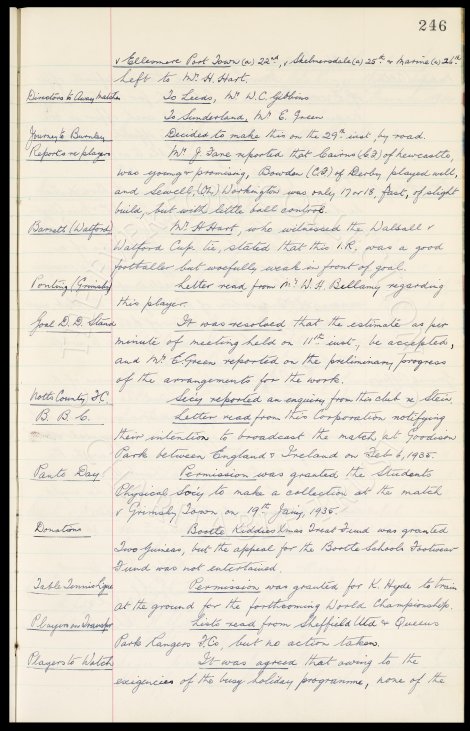 246
v Ellesmere Port Town (a) 22nd, v Skelmersdale (a) 25th & Marine (a) 26th
left to Mr. H. Hart.
Directors to Away Matches To Leeds, Mr. W.C. Gibbins
To Sunderland, Mr. E. Green
Journey to Burnley Decided to make this on the 29th inst, by road.
Reports re players Mr. J. Fare reported that Cairns (C.F) of Newcastle,
was young & promising, Bowden (C.F) of Derby played well,
and Sewell, Workington was only 17 or 18, fast, of slight
build, but with little ball control.
Barnett (Watford) Mr. H Hart, who witnessed the Walsall v
Watford Cup tie, stated that this I.R. was a good
footballer but woefully weak in front of goal.
Ponting (Grimsby) Letter read from Mr. W. H. Bellamy regarding
this player.
Goal D. D. Stand It was resolved that the estimate as per
minute of meeting held on 11th inst, be accepted,
and Mr. E. Green reported on the preliminary progress
of the arrangements for the work.
Notts County F.C Secy reported an enquiry from this club re Stein.
B. B. C. Letter read from this Corporation notifying
their intention to broadcast the match at Goodison
Park between England & Ireland on Feb 6, 1935.
Panto Day Permission was granted the Students
Physical Socy to make a collection at the match
v Grimsby Town on 19th Jany, 1935.
Donations Bootle Kiddies Xmas Treat Fund was granted
Two Guineas, but the appeal for the Bootle Schools Footwear
Fund was not entertained.
Table Tennis Lgue Permission was granted for K. Hyde to train
at the ground for the forthcoming World Championships.
Players on Transfer Lists read from Sheffield Utd & Queens
Park Rangers F.Cs, but no action taken.
Players to Watch It was agreed that owing to the
exigencies of the busy holiday programme, none of the